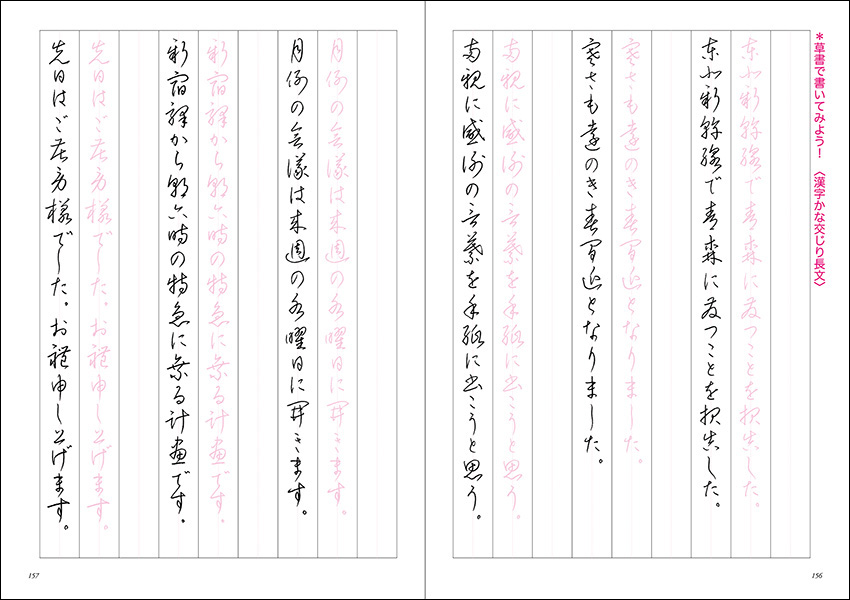 ＊草書で書いてみよう！〈漢字かな交じり長文〉
東北新幹線で青森に発つことを報告した。
東北新幹線で青森に発つことを報告した。
寒さも遠のき春間近となりました。
寒さも遠のき春間近となりました。
両親に感謝の言葉を手紙に書こうと思う。
両親に感謝の言葉を手紙に書こうと思う。
156
月例の会議は来週の水曜日に開きます。
月例の会議は来週の水曜日に開きます。
新宿駅から朝六時の特急に乗る計画です。
新宿駅から朝六時の特急に乗る計画です。
先日はご苦労様でした。お礼申し上げます。
先日はご苦労様でした。お礼申し上げます。
157